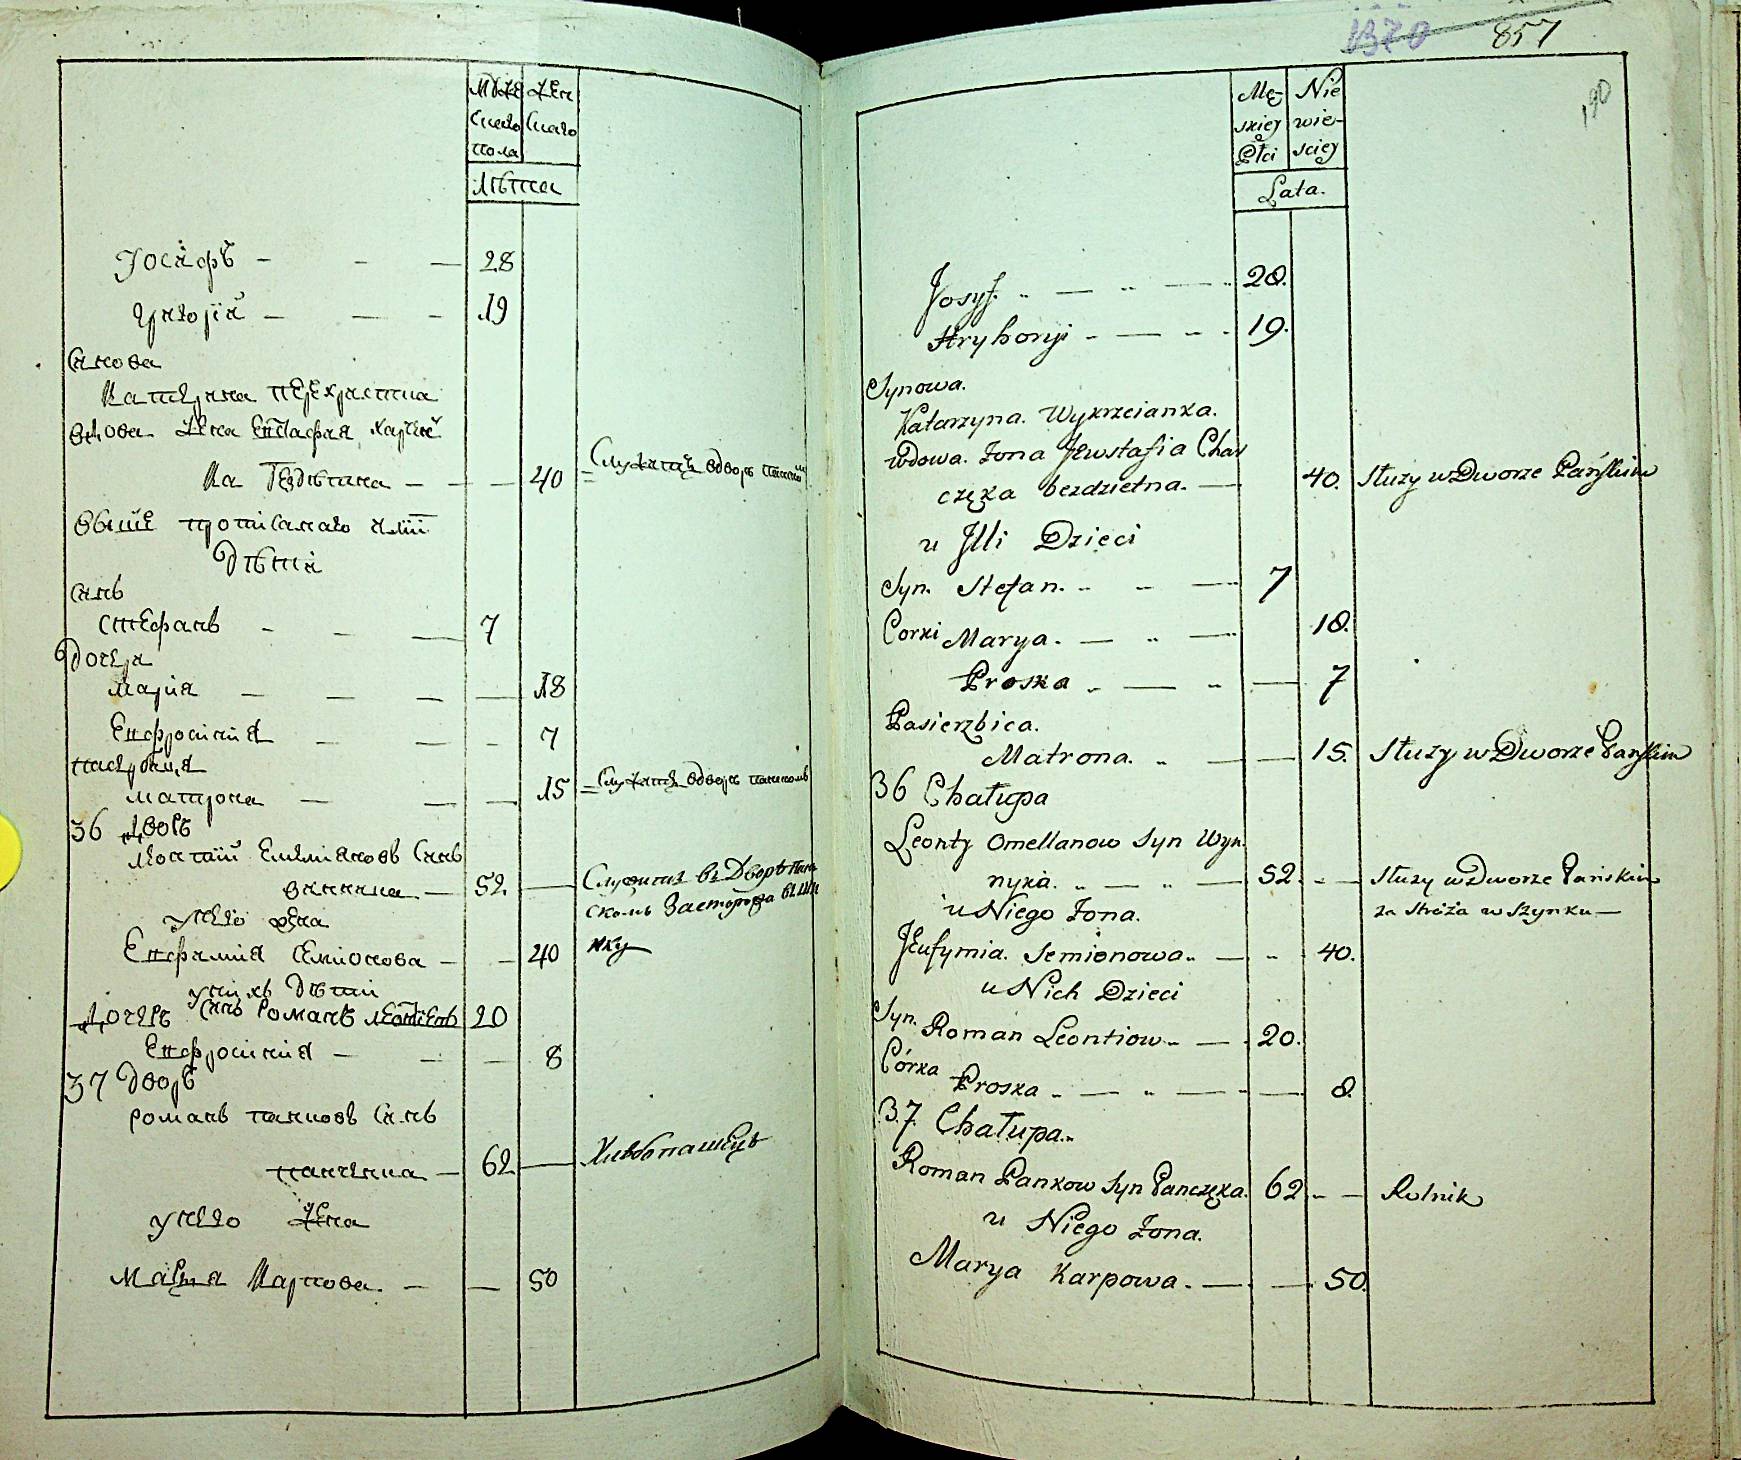 Мүже Жен
скаго скаго
пола
Лѣта
Іосифъ — — — 28
Григорій — — — 19
Снова
Катерина перехристка
вдова жена Евстафія Харче
ка Бездѣтна — — — 40 = Служитъ вдворѣ панском
Више прописаного
Дѣти
Снъ
Стефанъ — — — 7
Дочери
Марія — — — — 18
Евфросинія — — — 7
Падчерица
Матрона — — — 15 = Служитъ вдворѣ панскомъ
36 Дворъ
Леонтій Емеліяновъ Снъ
винника — 52 — Служитъ въ Дворѣ Пан
скомъ За сторожа въ ши
нку
унего жена
Евфимія Семіонова — — 40
унихъ Дѣти
Снъ Романъ Леонтіевъ 20
Дочерь
Евфросинія — — — 8
37 Дворъ
Романъ Панковъ Снъ
панченка — 62 — Хлѣбопашецъ
унего жена
Марія Карпова — — 50
1370 857
190
Mę- Nie
skiej wie-
Płci sciej
Lata.
Josyf. — — 28.
Hryhoryi — — 19.
Synowa.
Katarzyna. Wykrzcianka.
Wdowa. Żona Jewstafia Char
częka bezdzietna. — 40. Służy w Dworze Pańskim
u Jlli Dzieci
Syn. Stefan. — 7
Corki Marya. — — 18.
Proska — — 7
Pasierzbica.
Matrona. — — 15. Służy w Dworze Pańskim
36 Chałupa
Leonty Omellanow Syn Wyn.
nyka. — — 52. — Służy w Dworze Pańskim
za Stróża w Szynku —
u Niego Żona.
Jeufymia. Semionowa — 40.
u Nich Dzieci
Syn. Roman Leontiow — 20.
Córka Proska — — — 8.
37. Chałupa
Roman Pankow Syn Panczęka. 62 — Rolnik
u Niego Żona.
Marya Karpowa. — — 50.